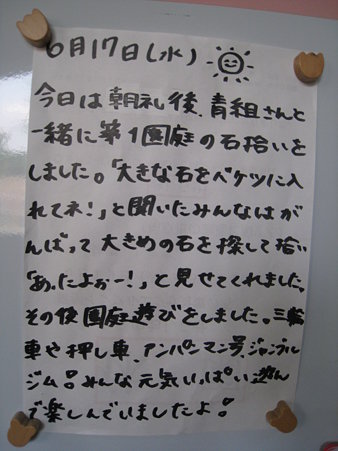 6月17日(水)
今日は朝礼後、青組さんと
一緒に第1園庭の石拾いを
しました。「大きな石をバケツに入
れてネ!」と聞いたみんなはが
んばって大きめの石を探して拾い
「あったよぉー!」と見せてくれました。
その後園庭遊びをしました。三輪
車や押し車、アンパンマン号、ジャングル
ジム!みんな元気いっぱい遊ん
で楽しんでいましたよ!